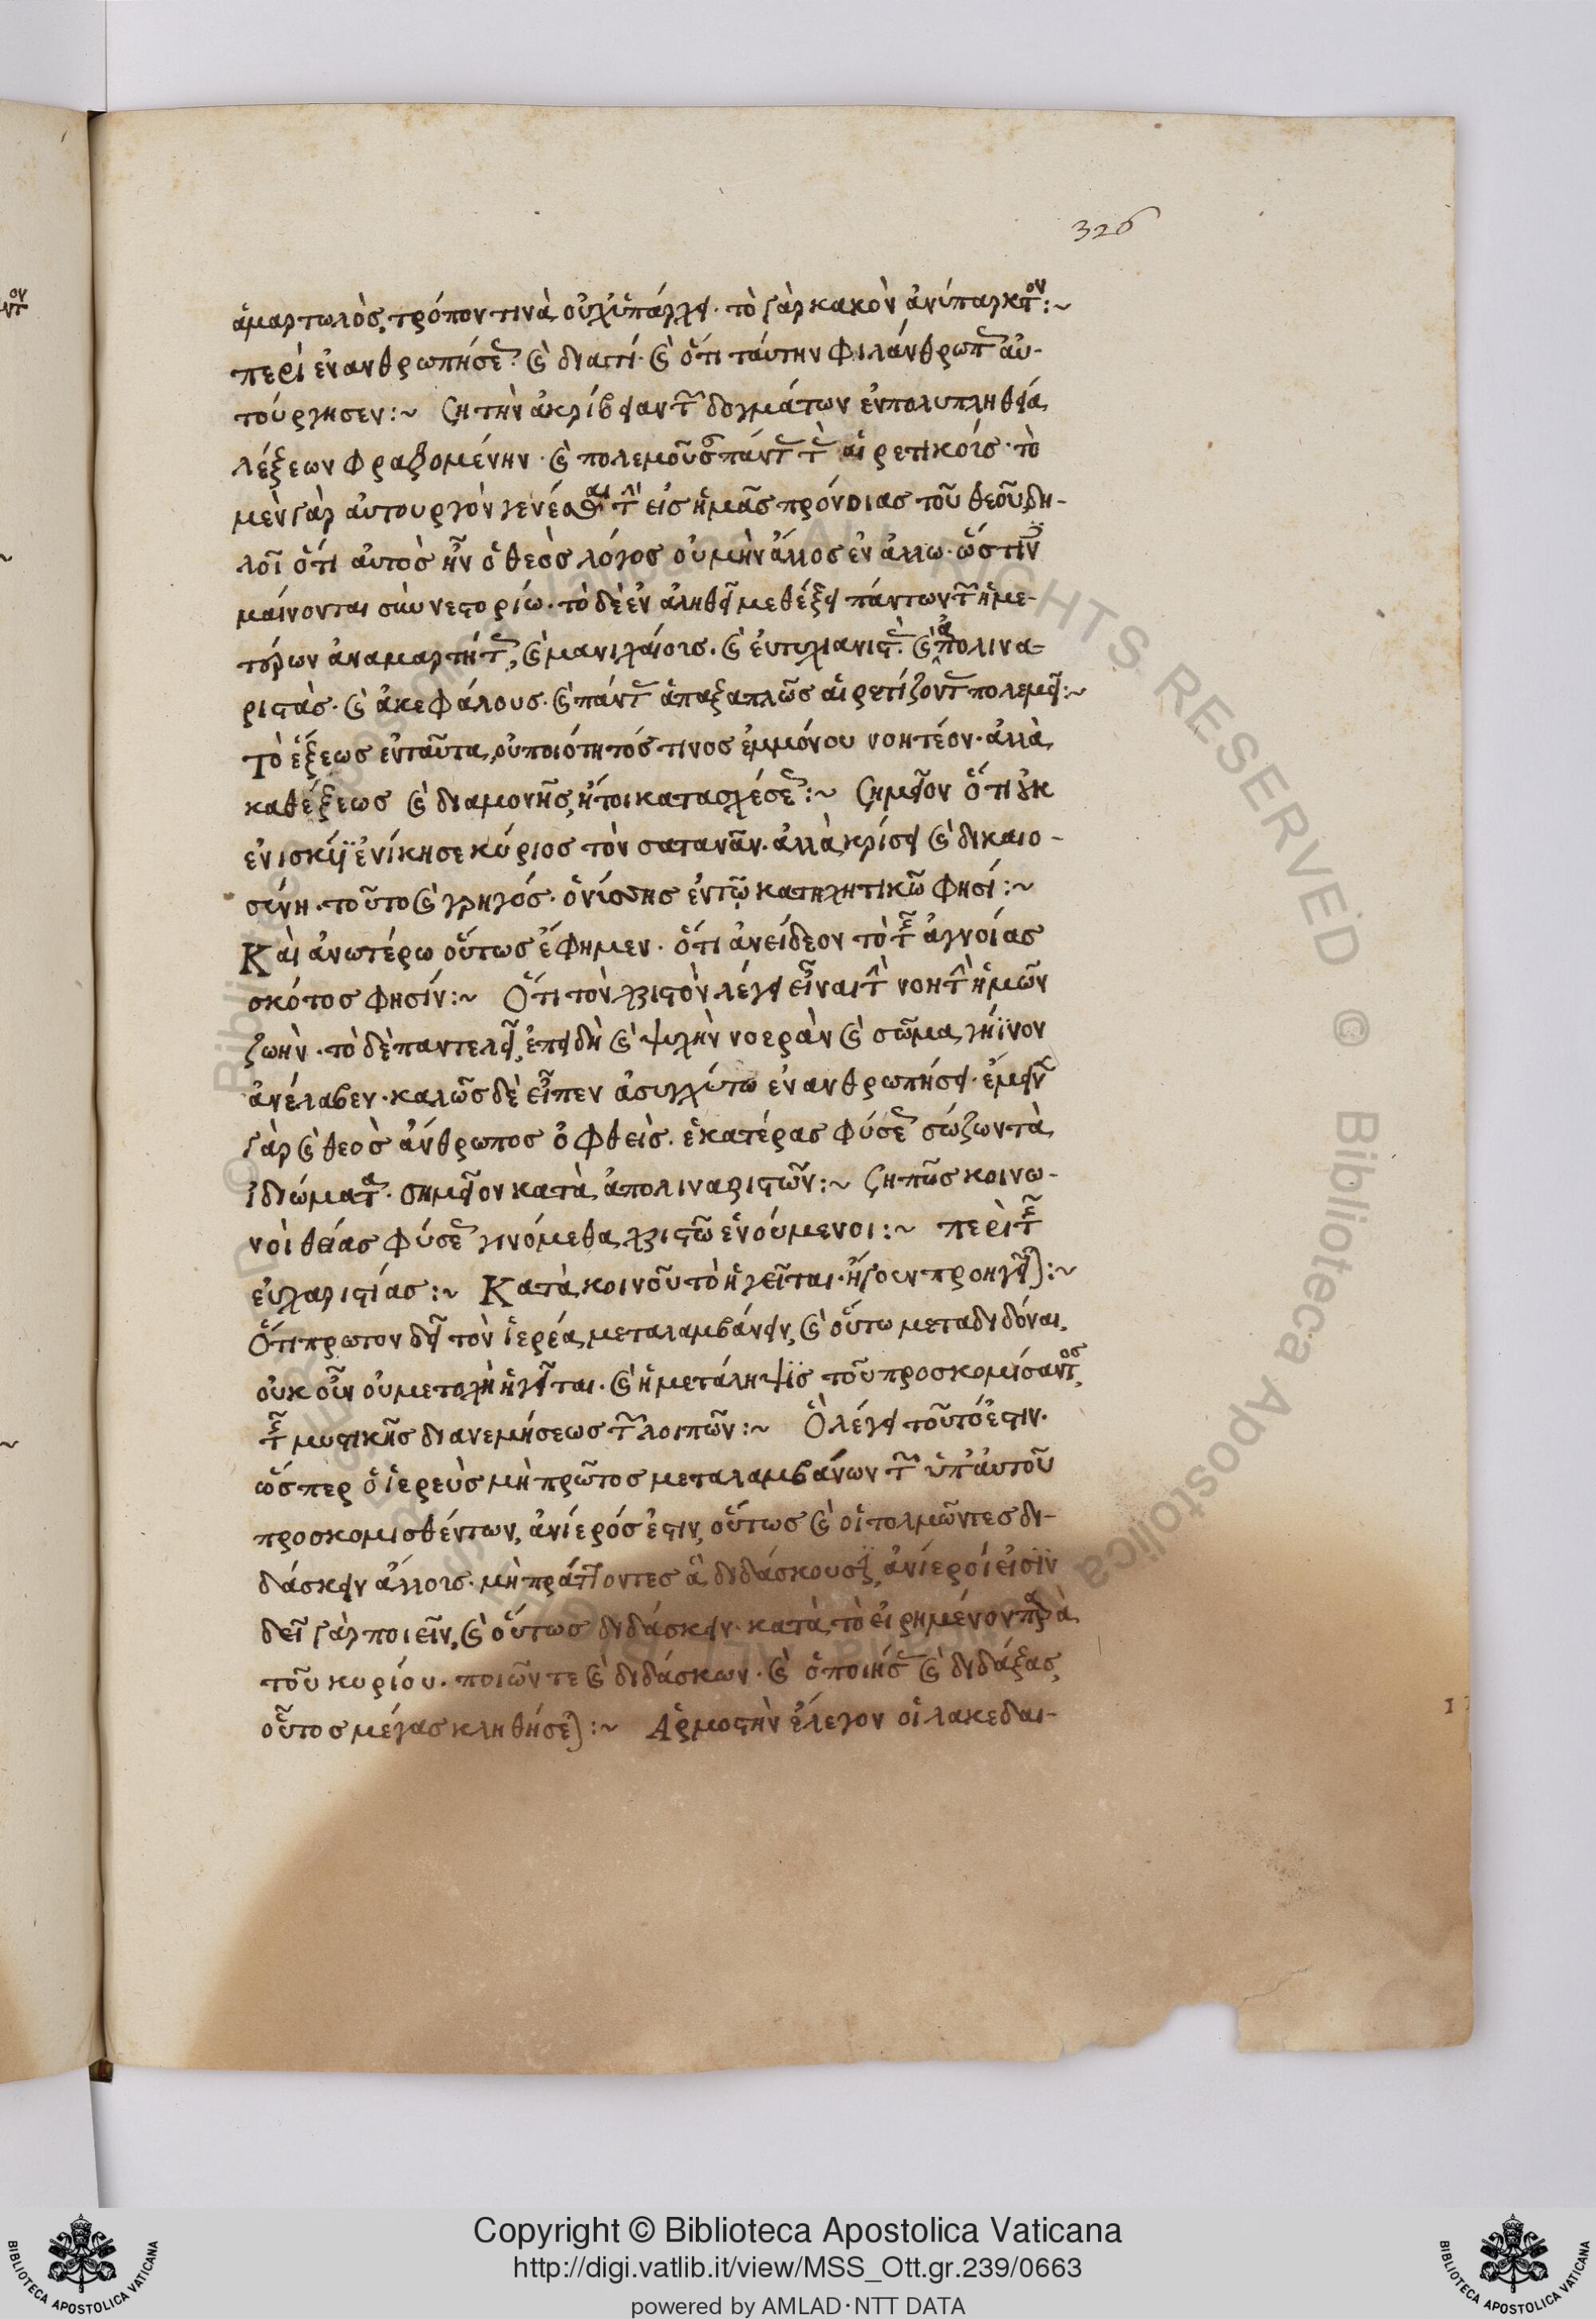 326
ἁμαρτωλὸς, τρόπον τινὰ οὐχ ὑπάρχει· τὸ γὰρ κακὸν ἀνύπαρκτον:~
περὶ ἐνανθρωπήσεως· καὶ διατί· καὶ ὅτι ταύτην φιλάνθρωπως αὐ-
τούργησεν:~ ζη τὴν ἀκρίβειαν τῶν δογμάτων ἐν πολυπληθεία
λέξεων φραζομένην· καὶ πολεμοῦσ πάντας τοὺς αἱρετικοῖς· τὸ
μὲν γὰρ αὐτουργὸν γενέσθαι τὴν εἰς ἡμᾶς πρόνοιας τοῦ θεοῦ δη-
λοῖ ὅτι αὐτὸς ἦν ὁ θεὸς λόγος οὐ μὴν ἄλλος ἐν ἄλλω·
μαίνονται σὺν νεστορίω· τὸ δὲ ἐν ἀληθεῖ μεθέξει πάντων τῶν ἡμε-
τέρων ἀναμαρτήτως, καὶ μανιχαίοις· καὶ ἐυτυχιανιστὰς· καὶ ἀπολινα-
ριστὰς· καὶ ἀκεφάλους· καὶ πάντας ἁπαξαπλῶς αἱρετίζοντας πολεμεῖ:~
Τὸ ἕξεως ἐνταῦτα, οὐ ποιότητός τινος ἐμμόνου νοητέον· ἀλλὰ
καθέξεως καὶ διαμονῆς, ἤτοι κατασχέσεως:~ ζημεῖον ὅτι οὐκ
ἐν ἰσχύϊ ἐνίκησε κύριος τὸν σατανᾶν· ἀλλὰ κρίσει καὶ δικαιο-
σύνη· τοῦτο καὶ γρηγόσ· ὁ νύσσης ἐν τῷ κατηχητικῶ φησί:~
Καὶ ἀνωτέρω οὕτως ἔφημεν· ὅτι ἀνείδεον τὸ τῆς ἀγνοίας
σκότος φησίν:~ Ὅτι τὸν χριστὸν λέγει εἶναι τὴν νοητὴν ἡμῶν
ζωὴν· τὸ δὲ παντελεῖ, ἐπειδὴ καὶ ψυχὴν νοερὰν καὶ σῶμα γήϊνον
ἀνέλαβεν· καλῶς δὲ εἶπεν ἀσυγχύτω ἐνανθρωπήσει· ἔμεινε
γὰρ καὶ θεὸς ἄνθρωπος ὀφθεὶς· ἑκατέρας φύσεως σώζων τὰ
ἰδιώματα· σημεῖον κατὰ ἀπολιναριστῶν:~ ζη πῶς κοινω-
νοὶ θείας φύσεως γινόμεθα χριστῶ ἑνούμενοι:~ περὶ τῆς
εὐχαριστίας:~ Κατὰ κοινοῦ τὸ ἡγεῖται· ἤγουν προηγεῖται:~
Ὅτι πρωτον δεῖ τὸν ἱερέα μεταλαμβάνειν, καὶ οὕτω μεταδιδόναι,
οὐκ οὖν οὐ μετοχὴ ἡγεῖται· καὶ ἡ μετάληψις τοῦ προσκομίσαντος,
τῆς μυστικῆς διανεμήσεως τῶν λοιπῶν:~ Ὃ λέγει τοῦτό ἐστιν·
ὥσπερ ὁ ἱερεὺς μὴ πρῶτος μεταλαμβάνων τῶν ὑπ' ἀυτοῦ
προσκομισθέντων, ἀνίερός ἐστιν, οὕτως καὶ οἱ τολμῶντες δι-
δάσκειν ἄλλοις· μὴ πράττοντες ἃ διδάσκουσι, ἀνίεροί εἰσϊν
δεῖ γὰρ ποιεῖν, καὶ οὕτως διδάσκειν· κατὰ τὸ εἰρημένον παρὰ
τοῦ κυρίου· ποιῶν τε καὶ διδάσκων· καὶ ὁ ποιήσας καὶ διδάξας,
οὗτος μέγας κληθήσεται:~ Ἁρμοστὴν ἔλεγον οἱ λακεδαι-
Copyright © Biblioteca Apostolica Vaticana
http://digi.vatlib.it/view/MSS_Ott.gr.239/0663
powered by AMLAD·NTT DATA
BIBLIOTECA APOSTOLICA VATICANA
BIBLIOTECA APOSTOLICA VATICANA